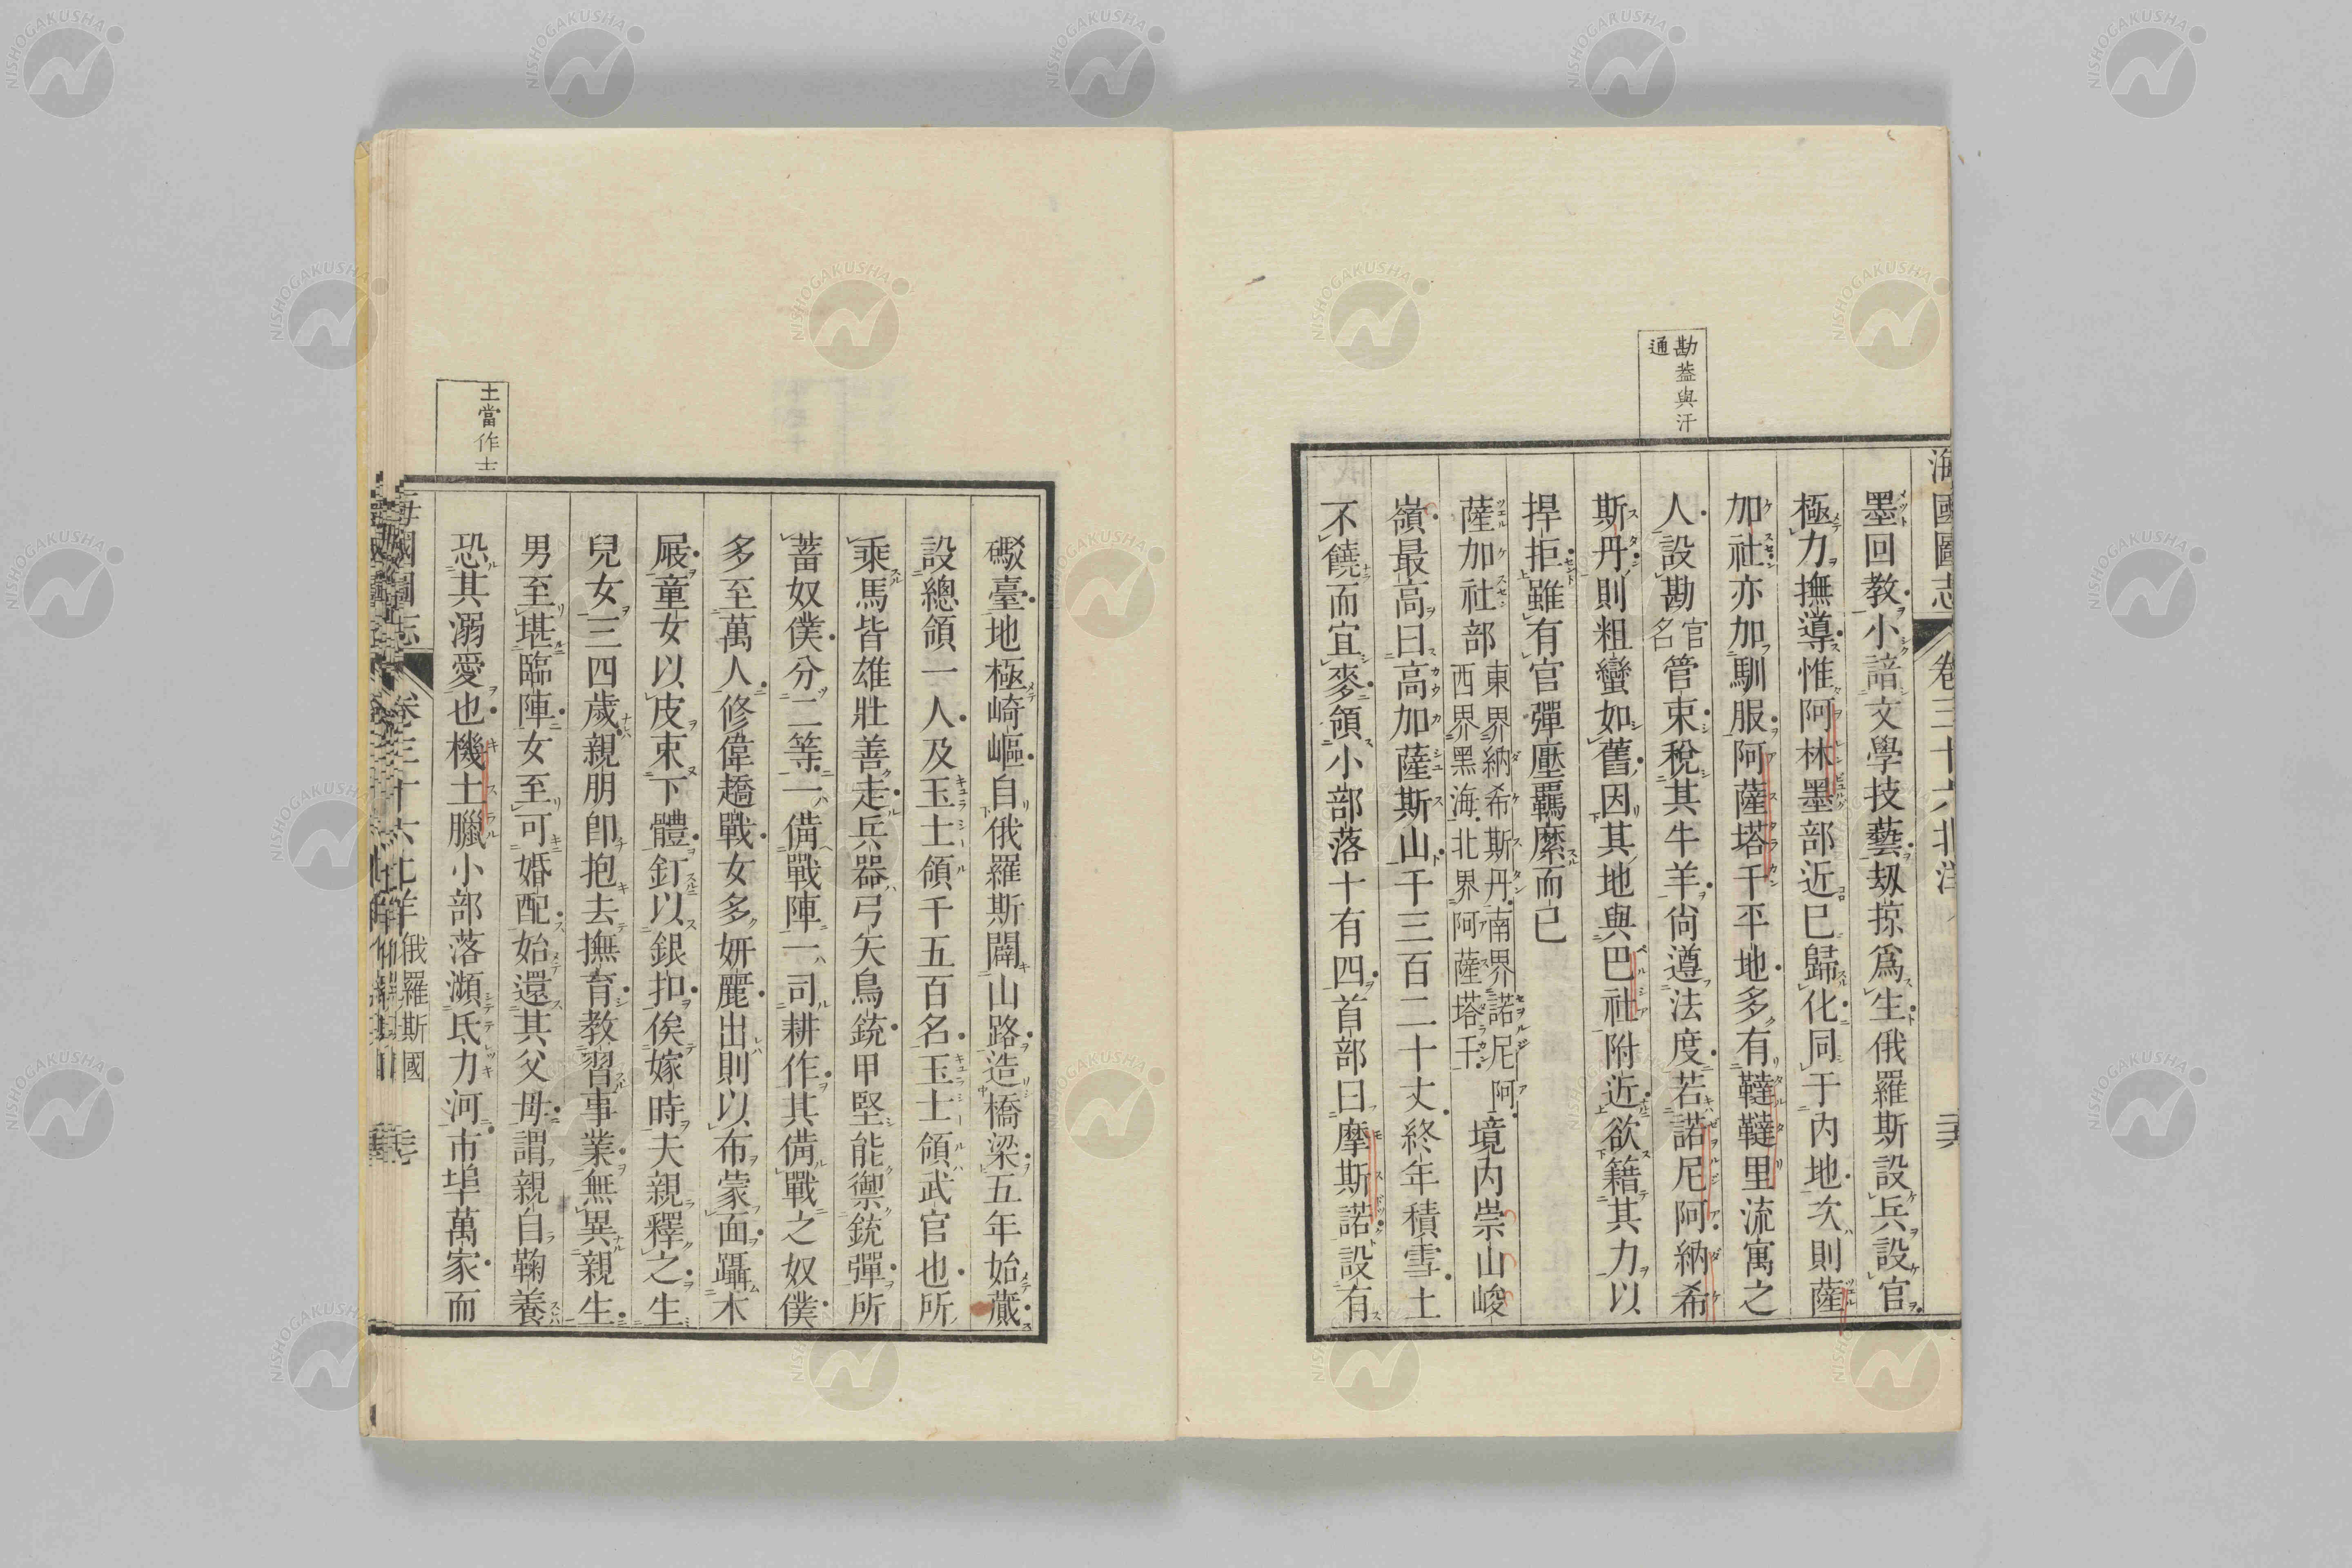 海國圖志 卷三十六北洋
勘葢與汗
通
墨回教小諳文學技藝刼掠爲生俄羅斯設兵設官
極力撫導惟阿林墨部近已歸化同于内地次則薩
加社亦加馴服阿薩塔干平地多有韃韃里流寓之
人設勘官名管束稅其牛羊尙遵法度若諾尼阿納希
斯丹則粗蠻如舊因其地與巴社附近欲籍其力以
捍拒雖有官彈壓羈縻而已
薩加社部東界納希斯丹南界諾尼阿西界黑海北界阿薩塔干境内崇山峻
嶺最高曰高加薩斯山千三百二十丈終年積雪土
不饒而宜麥領小部落十有四首部曰摩斯諾設有
礮臺地極崎嶇自俄羅斯闢山路造橋梁五年始蕆
設總領一人及玉士領千五百名玉士領武官也所
乘馬皆雄壯善走兵器弓矢鳥銃甲堅能禦銃彈所
蓄奴僕分二等一備戰陣一司耕作其備戰之奴僕
多至萬人修偉趫戰女多妍麗出則以布蒙面躡木
屐童女以皮束下體釘以銀扣俟嫁時夫親釋之生
兒女三四歲親朋卽抱去撫育教習事業無異親生
男至堪臨陣女至可婚配始還其父母謂親自鞠養
恐其溺愛也機土臘小部落瀕氐力河市埠萬家而
王當作士
海國圖志 卷三十六北洋 俄羅斯國